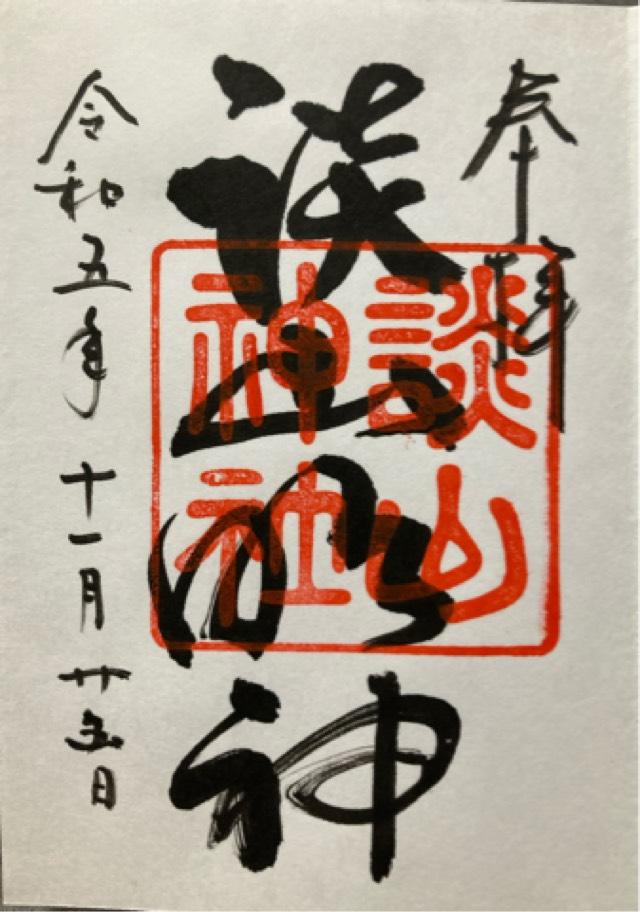 奉拝
談山明神
談山
神社
令和五年十一月廿五日